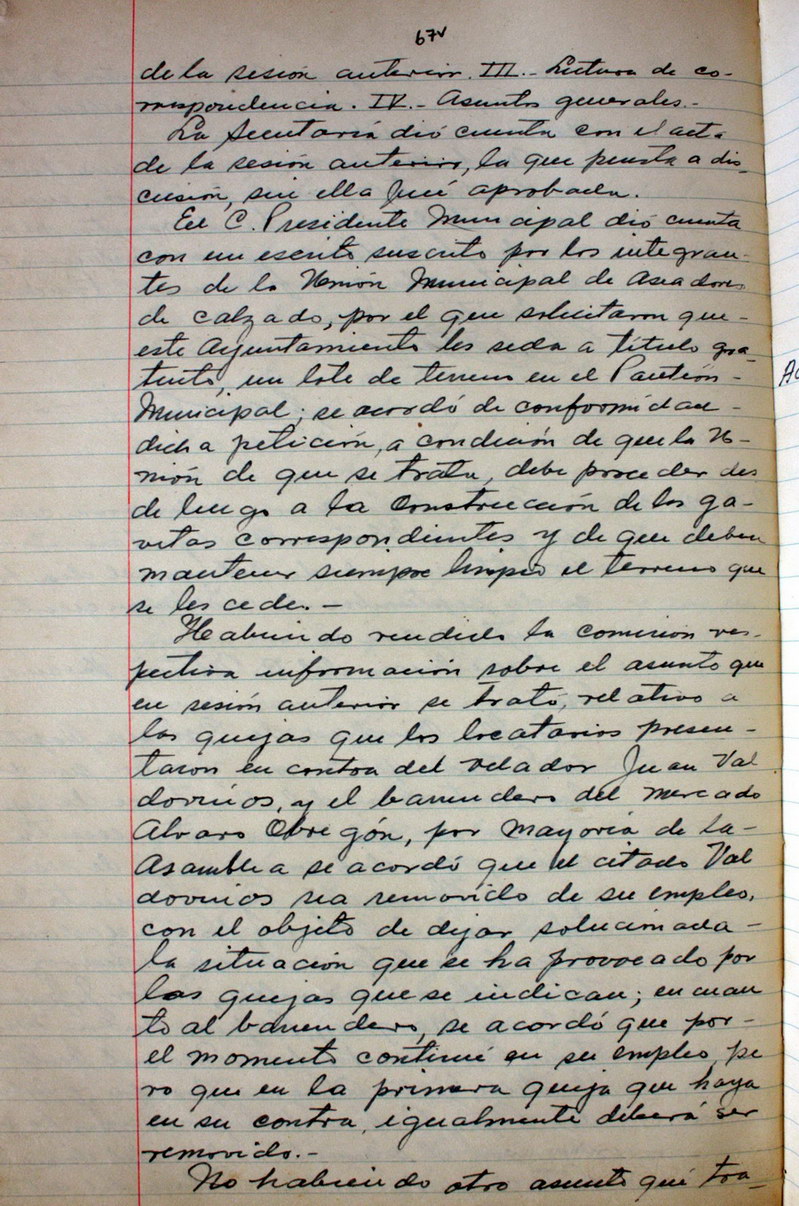 67v
de la sesión anterior. III.- Lectura de co-
rrespondencia. IV.- Asuntos generales.-
La Secretaría dió cuenta con el acta
de la sesión anterior, la que puesta a dis-
cusión, sin ella fué aprobada.
El C. Presidente Municipal dió cuenta
con un escrito suscrito por los integran-
tes de la Unión Municipal de Aseadores
de calzado, por el que solicitaron que-
este Ayuntamiento les seda a título gra-
tuito, un lote de terreno en el Panteón-
Municipal; se acordó de conformidad-
dicha petición, a condición de que la U-
nión de que se trata, debe proceder des
de luego a la construcción de las ga-
vetas correspondientes y de que deben
mantener siempre limpio el terreno que
se les cede.-
Habiendo rendido la comisión res-
pectiva información sobre el asunto que
en sesión anterior se trató, relativo a
las quejas que los locatarios presen-
taron en contra del velador Juan Val
dovinos, y el barrendero del mercado
Alvaro Obregón, por mayoría de la-
Asamblea se acordó que el citado Val
dovinos sea removido de su empleo,
con el objeto de dejar solucionada-
la situación que se ha provocado por
las quejas que se indican; en cuan
to al barrendero, se acordó que por-
el momento continúe en su empleo, pe
ro que en la primera queja que haya
en su contra, igualmente deberá ser
removido.-
No habiendo otro asunto qué tra-